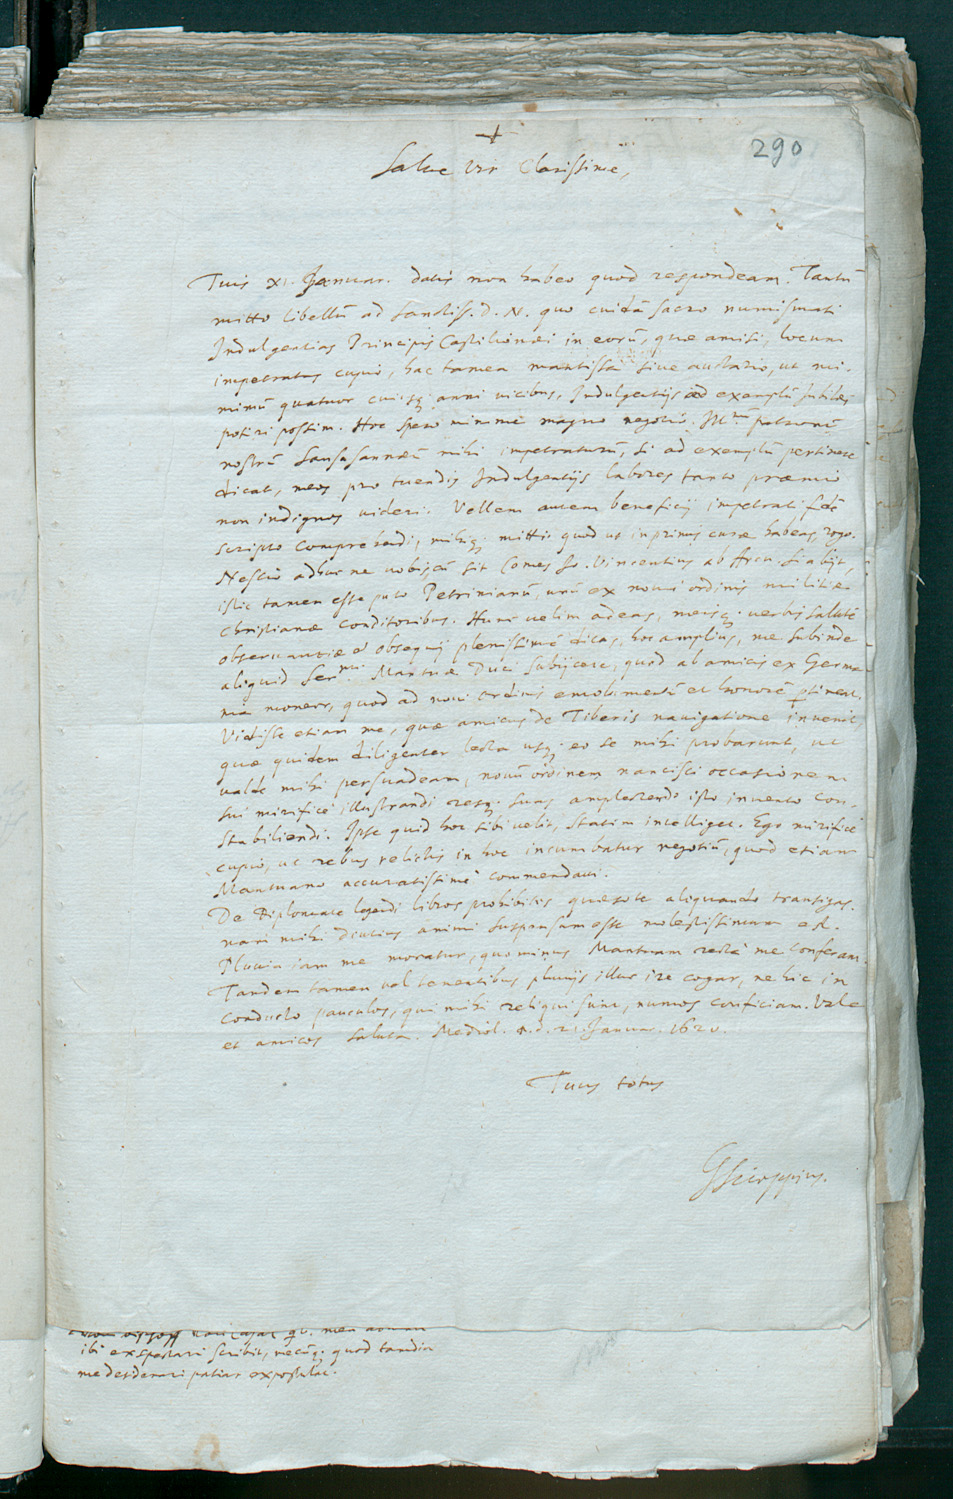 290
+
Salve Vir Clarissime,
Tuis XI. Januar. datis non habeo quod respondeam. Tantũ
mitto libellũ ad Sanctiss. D. N. quo cuidã sacro numismati
Indulgentias Principis Castilionæi in eorũ, quæ amisi, locum
impetratas cupio, hac tamen mantissa sive auctario, ut mi-
nimũ quatuor cuiusq; anni vicibus, Indulgentijs ad exemplũ Jubilæi
potiri possim. Hoc spero minimè magno negotio Ill.mũ patronũ
nostrũ Sansusannæũ mihi impetraturũ, si ad exemplũ pertinere
dicat, meos pro tuendis Indulgentijs labores tanto præmio
non indignos videri. Vellem autem beneficij impetrati fidẽ
scripto comprehendi, mihiq; mitti: quod ut inprimis curæ habeas, rogo.
Nescio adhuc ne vobiscũ sit Comes Jo. Vincentius ab Arcu. Si abijt,
istic tamen esse puto Petrinianũ, unũ ex novi ordinis militiæ
christianæ conditoribus. Hunc velim adeas, meisq; verbis salutẽ
observantiæ et obsequij plenissimã dicas, hoc amplius, me subinde
aliquid Ser.mo Mantuæ Duci subijcere, quod ab amicis ex Germa-
nia moneor, quod ad novi ordinis emolumentũ et honorẽ ptineat.
Vidisse etiam me, quæ amicus de Tiberis navigatione invenit,
quæ quidem diligenter lecta usq; eo se mihi probarunt, ut
valde mihi persuadeam, novũ ordinem nancisci occasionem
sui mirificè illustrandi resq; suas amplectendo isto invento con-
stabiliendi. Ipse quid hoc sibi velit, statim intelliget. Ego mirificè
cupio, ut rebus relictis in hoc incumbatur negotiũ, quod etiam
Mantuano accuratissimè commendavi.
De Diplomate legendi libros prohibitos quæso te aliquando transigas.
nam mihi diutius animi suspensum esse molestissimum est.
Pluvia iam me moratur, quominus Mantuam rectà me conferam.
Tandem tamen vel tenentibus pluvijs illuc ire cogar, ne hic in
conducto pauculos, qui mihi reliqui sunt, numos conficiam. Vale
et amicos saluta. Mediol. a. d. 21. Januar. 1620.
Tuus totus
GScioppius.
ibi exspectari scribit, mecũq; quod tamdiu
me desiderari patiar expostulat.